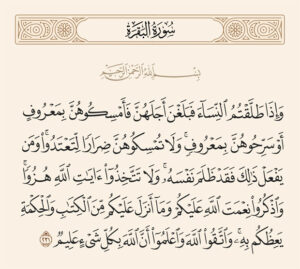 سُورَةُ البَقَرَةِ
بِسْمِ ٱللَّهِ ٱلرَّحْمَٰنِ ٱلرَّحِيمِ
وَإِذَا طَلَّقْتُمُ ٱلنِّسَآءَ فَبَلَغْنَ أَجَلَهُنَّ فَأَمْسِكُوهُنَّ بِمَعْرُوفٍ
أَوْ سَرِّحُوهُنَّ بِمَعْرُوفٍ ۚ وَلَا تُمْسِكُوهُنَّ ضِرَارًا لِّتَعْتَدُوا۟ ۚ وَمَن
يَفْعَلْ ذَٰلِكَ فَقَدْ ظَلَمَ نَفْسَهُۥ ۚ وَلَا تَتَّخِذُوٓا۟ ءَايَٰتِ ٱللَّهِ هُزُوًا ۚ
وَٱذْكُرُوا۟ نِعْمَتَ ٱللَّهِ عَلَيْكُمْ وَمَآ أَنزَلَ عَلَيْكُم مِّنَ ٱلْكِتَٰبِ وَٱلْحِكْمَةِ
يَعِظُكُم بِهِۦ ۚ وَٱتَّقُوا۟ ٱللَّهَ وَٱعْلَمُوٓا۟ أَنَّ ٱللَّهَ بِكُلِّ شَىْءٍ عَلِيمٌ ٢٣١